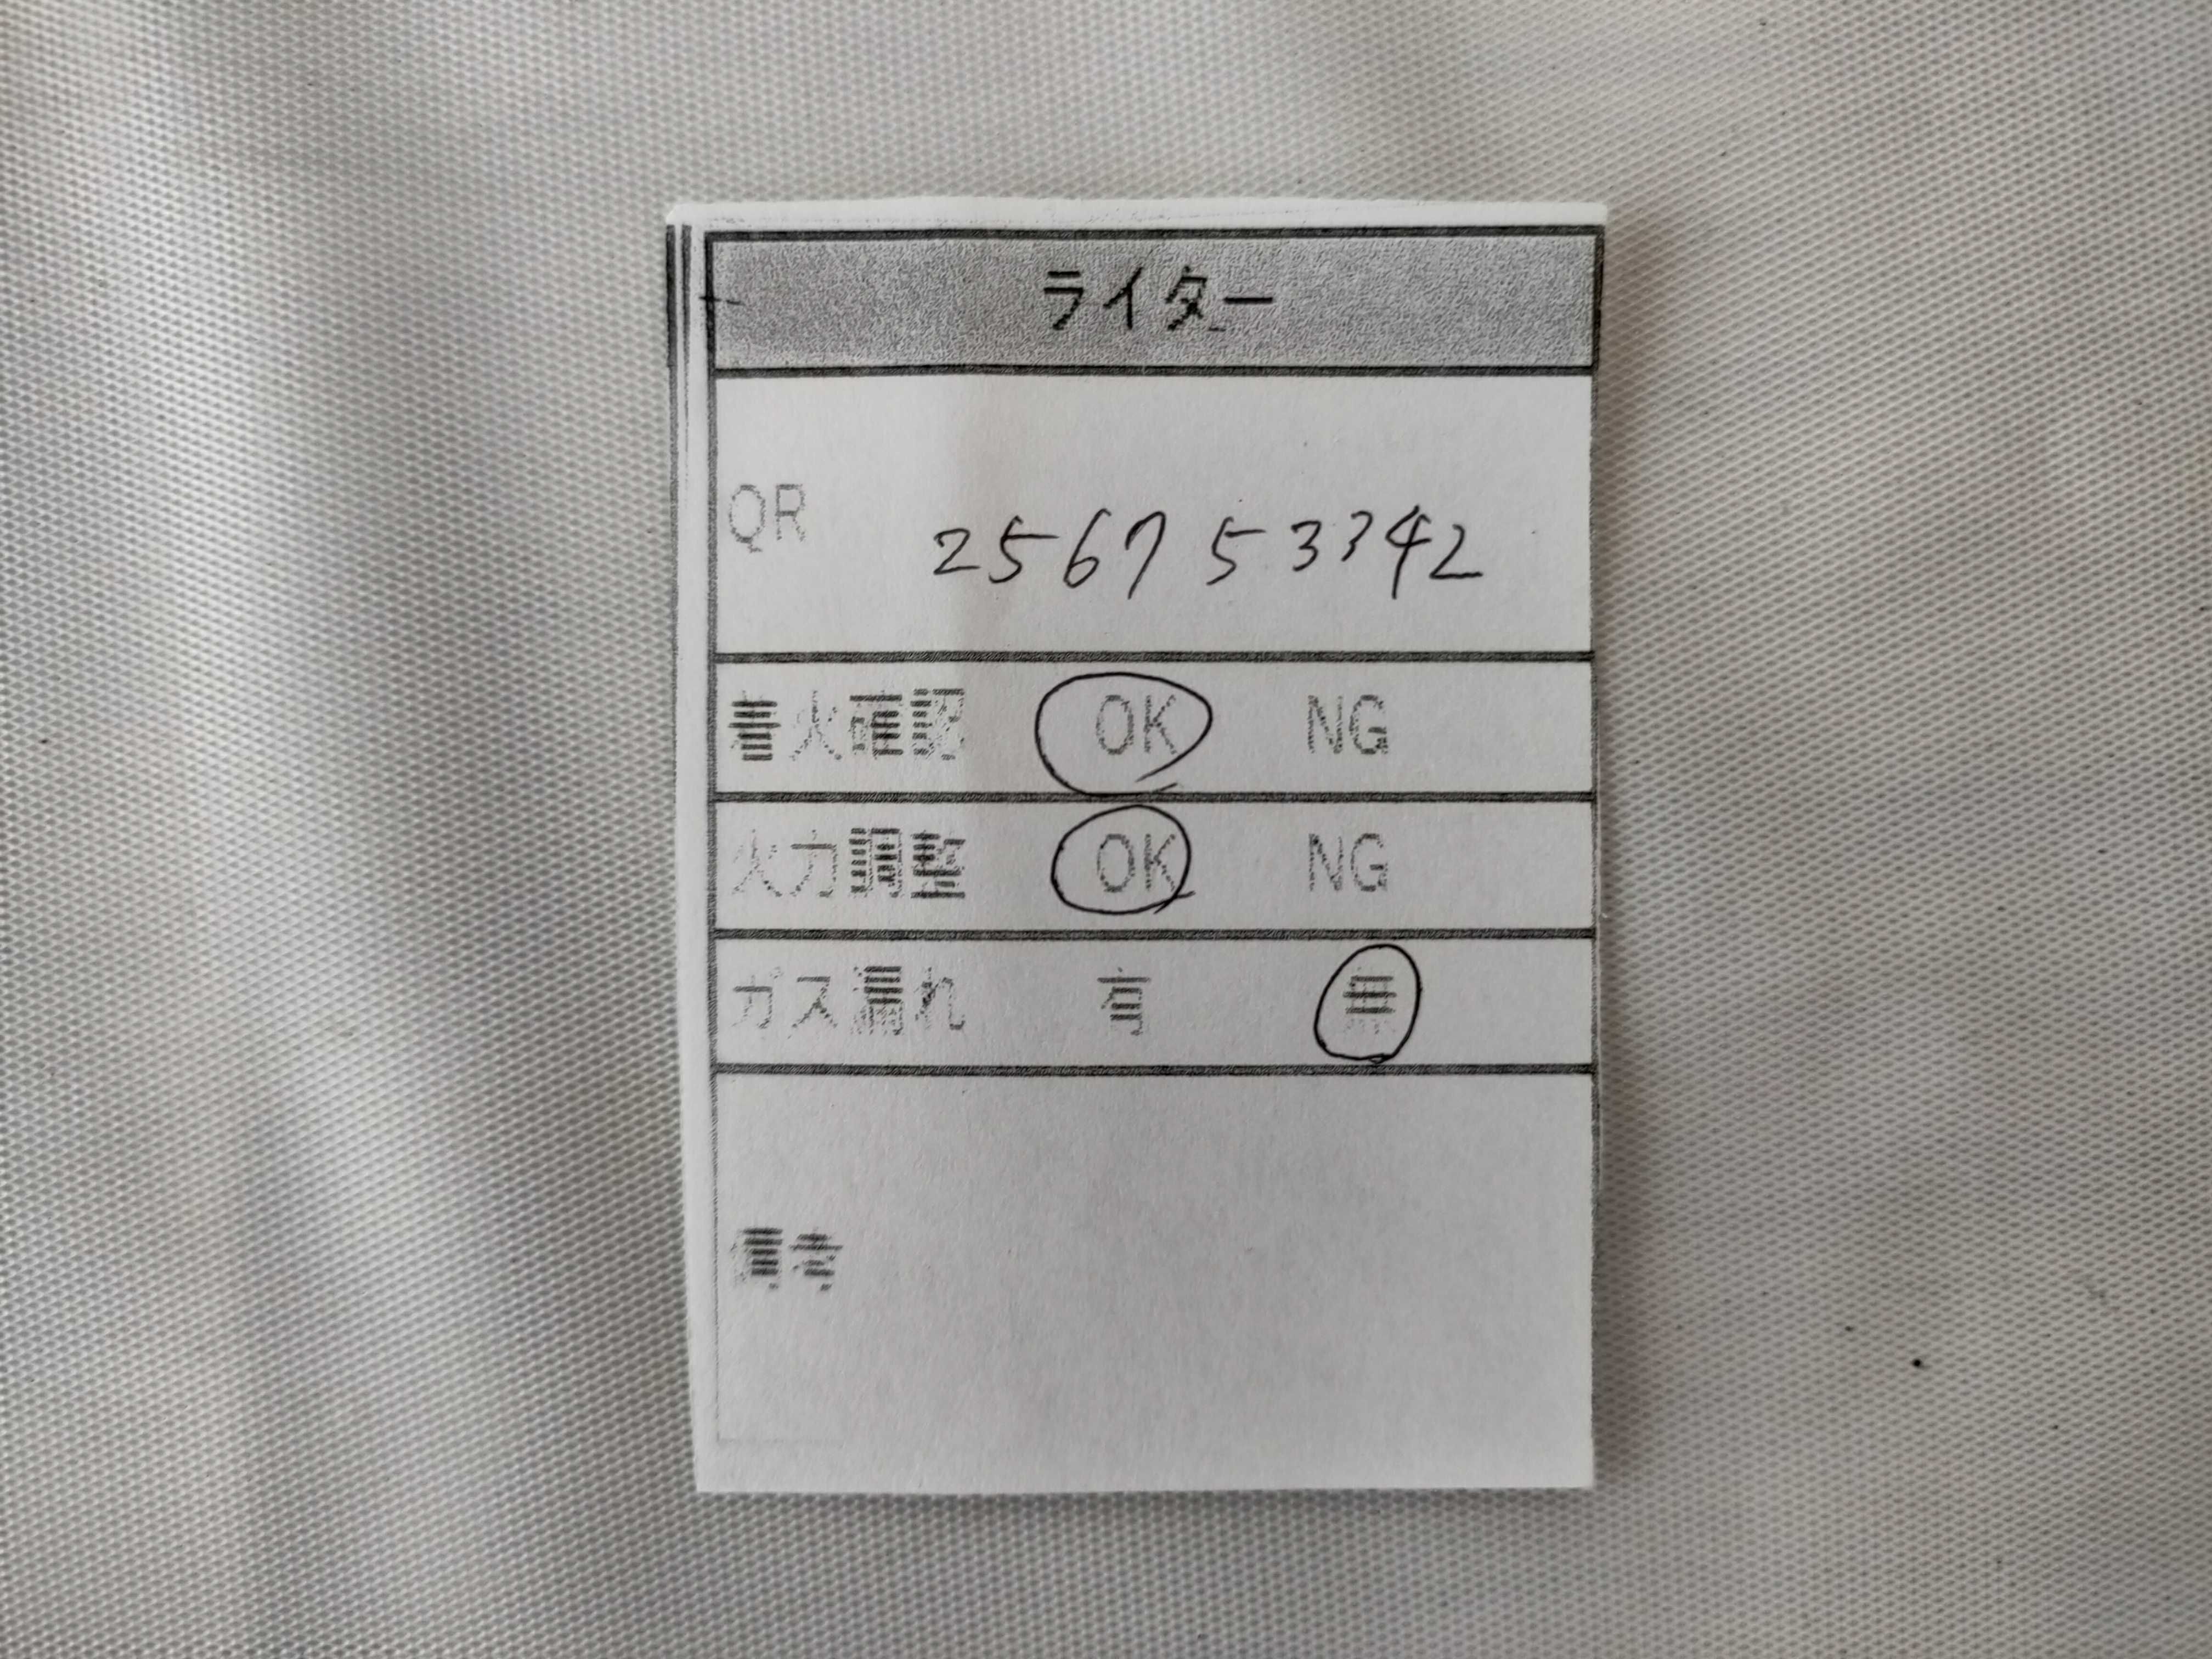 ライター
QR 256753342
着火確認 OK NG
火力調整 OK NG
ガス漏れ 有 無
備考